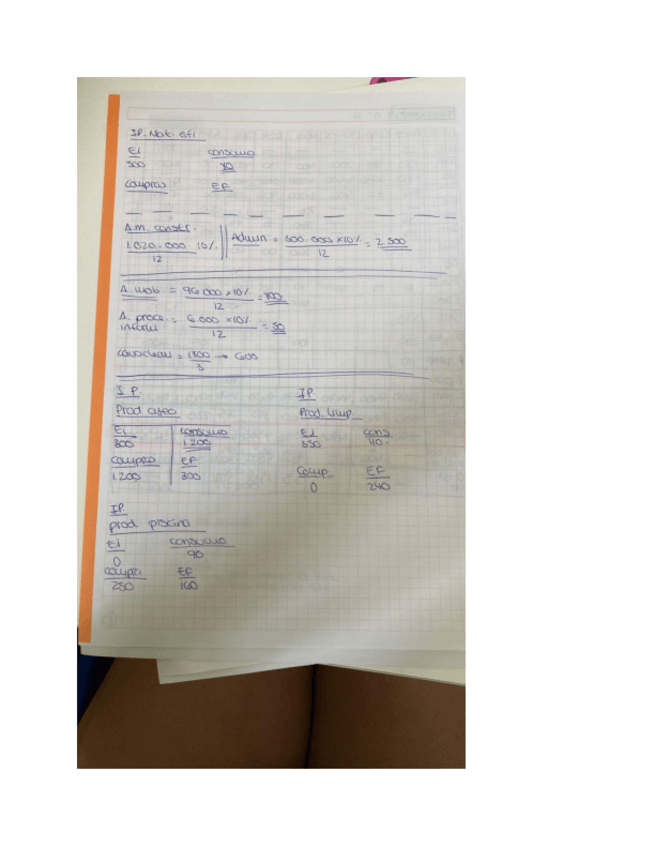 I.P. Mat. ofi
EI consumo
300 40
compras EF
A.m. constr.
1.020.000 10% Admin = 300.000 x 10% = 2.500
12 12
A. mob = 96.000 x 10% = 800
12
A. proce = 6.000 x 10% = 50
inform 12
1800 → 600
3
I.P. IP
Prod aseo Prod. Limp
EI consumo EI cons
300 1.200 350 110
compras EF Comp. EF
1.200 300 0 240
IP
prod piscina
EI consumo
0 90
compra EF
250 160